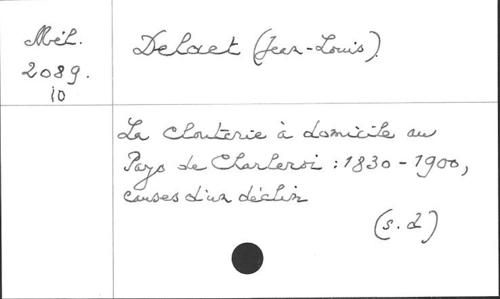 Mél.
2089.
10
Delaet (Jean-Louis).
La clouterie à domicile au
Pays de Charleroi : 1830-1900,
causes d'un déclin
(s.d)